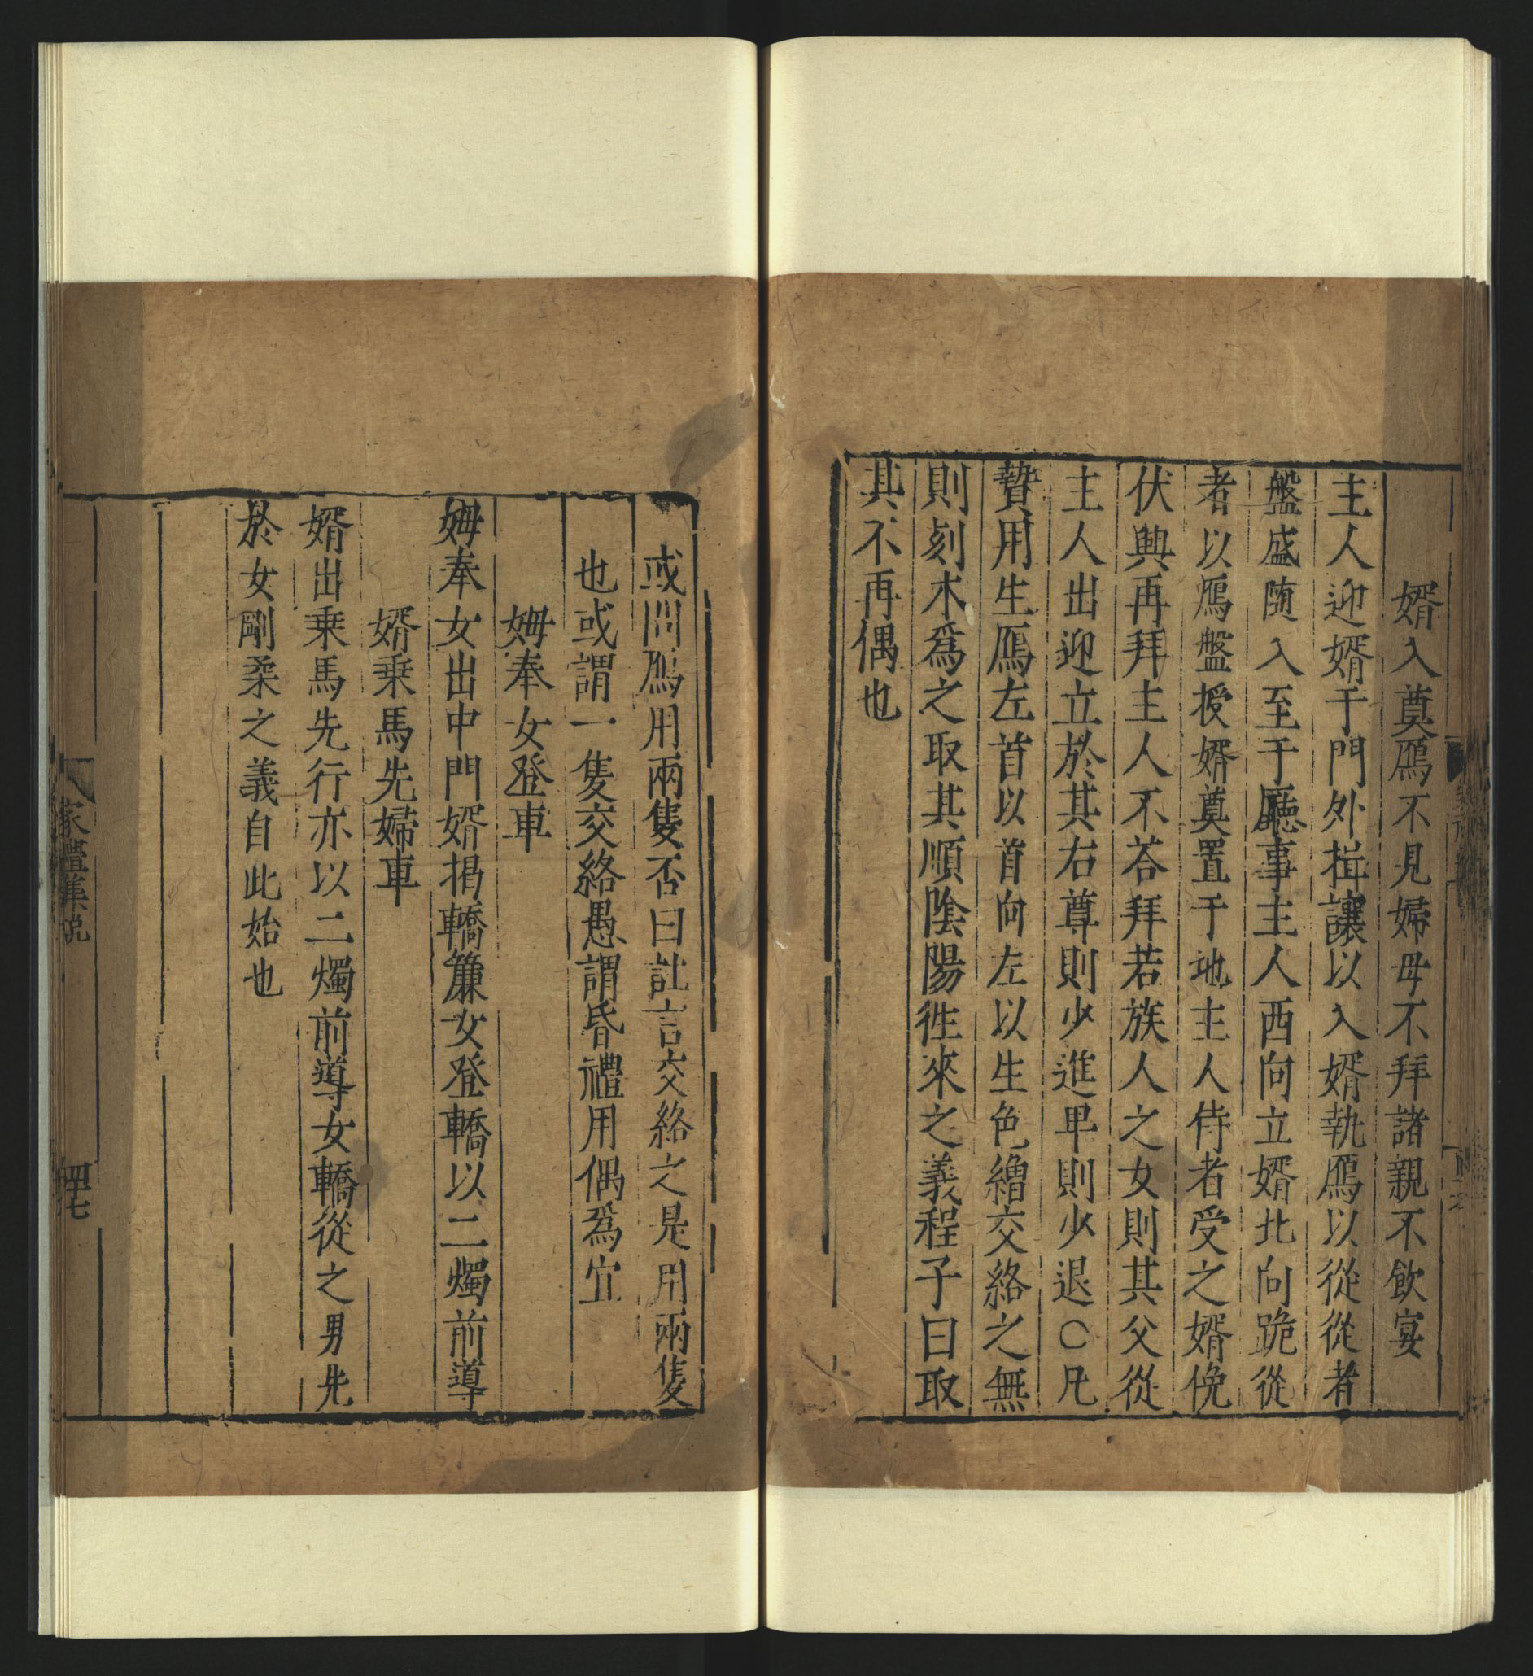 婿入奠鴈不見婦母不拜諸親不飲宴
主人迎婿于門外揖讓以入婿執鴈以從從者
盤盛随入至于廳事主人西向立婿北向跪從
者以鴈盤授婿奠置于地主人侍者受之婿俛
伏興再拜主人不荅拜若族人之女則其父從
主人出迎立於其右尊則少進卑則少退〇凡
贄用生鴈左首以首向左以生色繒交絡之無
則刻木爲之取其順陰陽徃來之義程子曰取
其不再偶也
或問鴈用兩隻否曰註言交絡之是用兩隻
也或謂一隻交絡愚謂昏禮用偶爲宜
姆奉女登車
姆奉女出中門婿揭轎簾女登轎以二燭前導
婿乗馬先婦車
婿出乗馬先行亦以二燭前導女轎從之男先
於女剛柔之義自此始也
家禮集説
四十七